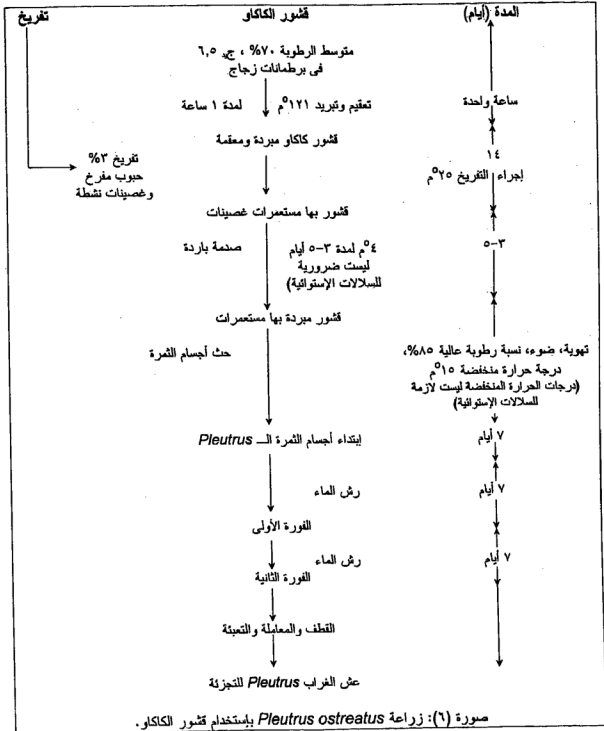 تفريخ
قشور الكاكاو
المدة (أيام)
متوسط الرطوبة ٧٠% ، ج‍يد ٦,٥
فى برطمانات زجاج
تعقيم وتبريد ١٢١°م لمدة ١ ساعة
ساعة واحدة
قشور كاكاو مبردة ومعقمة
تفريخ ٣%
حبوب مفرخ
وغصينات نشطة
١٤
إجراء التفريخ ٢٥°م
قشور بها مستعمرات غصينات
صدمة باردة
٤°م لمدة ٣-٥ أيام
ليست ضرورية
للسلالات الإستوائية)
٣-٥
قشور مبردة بها مستعمرات
حث أجسام الثمرة
تهوية، ضوء، نسبة رطوبة عالية ٨٥%،
درجة حرارة منخفضة ١٥°م
(درجات الحرارة المنخفضة ليست لازمة
للسلالات الإستوائية)
إبتداء أجسام الثمرة الـــ Pleutrus
٧ أيام
رش الماء
٧ أيام
الفورة الأولى
رش الماء
٧ أيام
الفورة الثانية
القطف والمعاملة والتعبئة
عش الغراب Pleutrus للتجزئة
صورة (٦): زراعة Pleutrus ostreatus بإستخدام قشور الكاكاو.